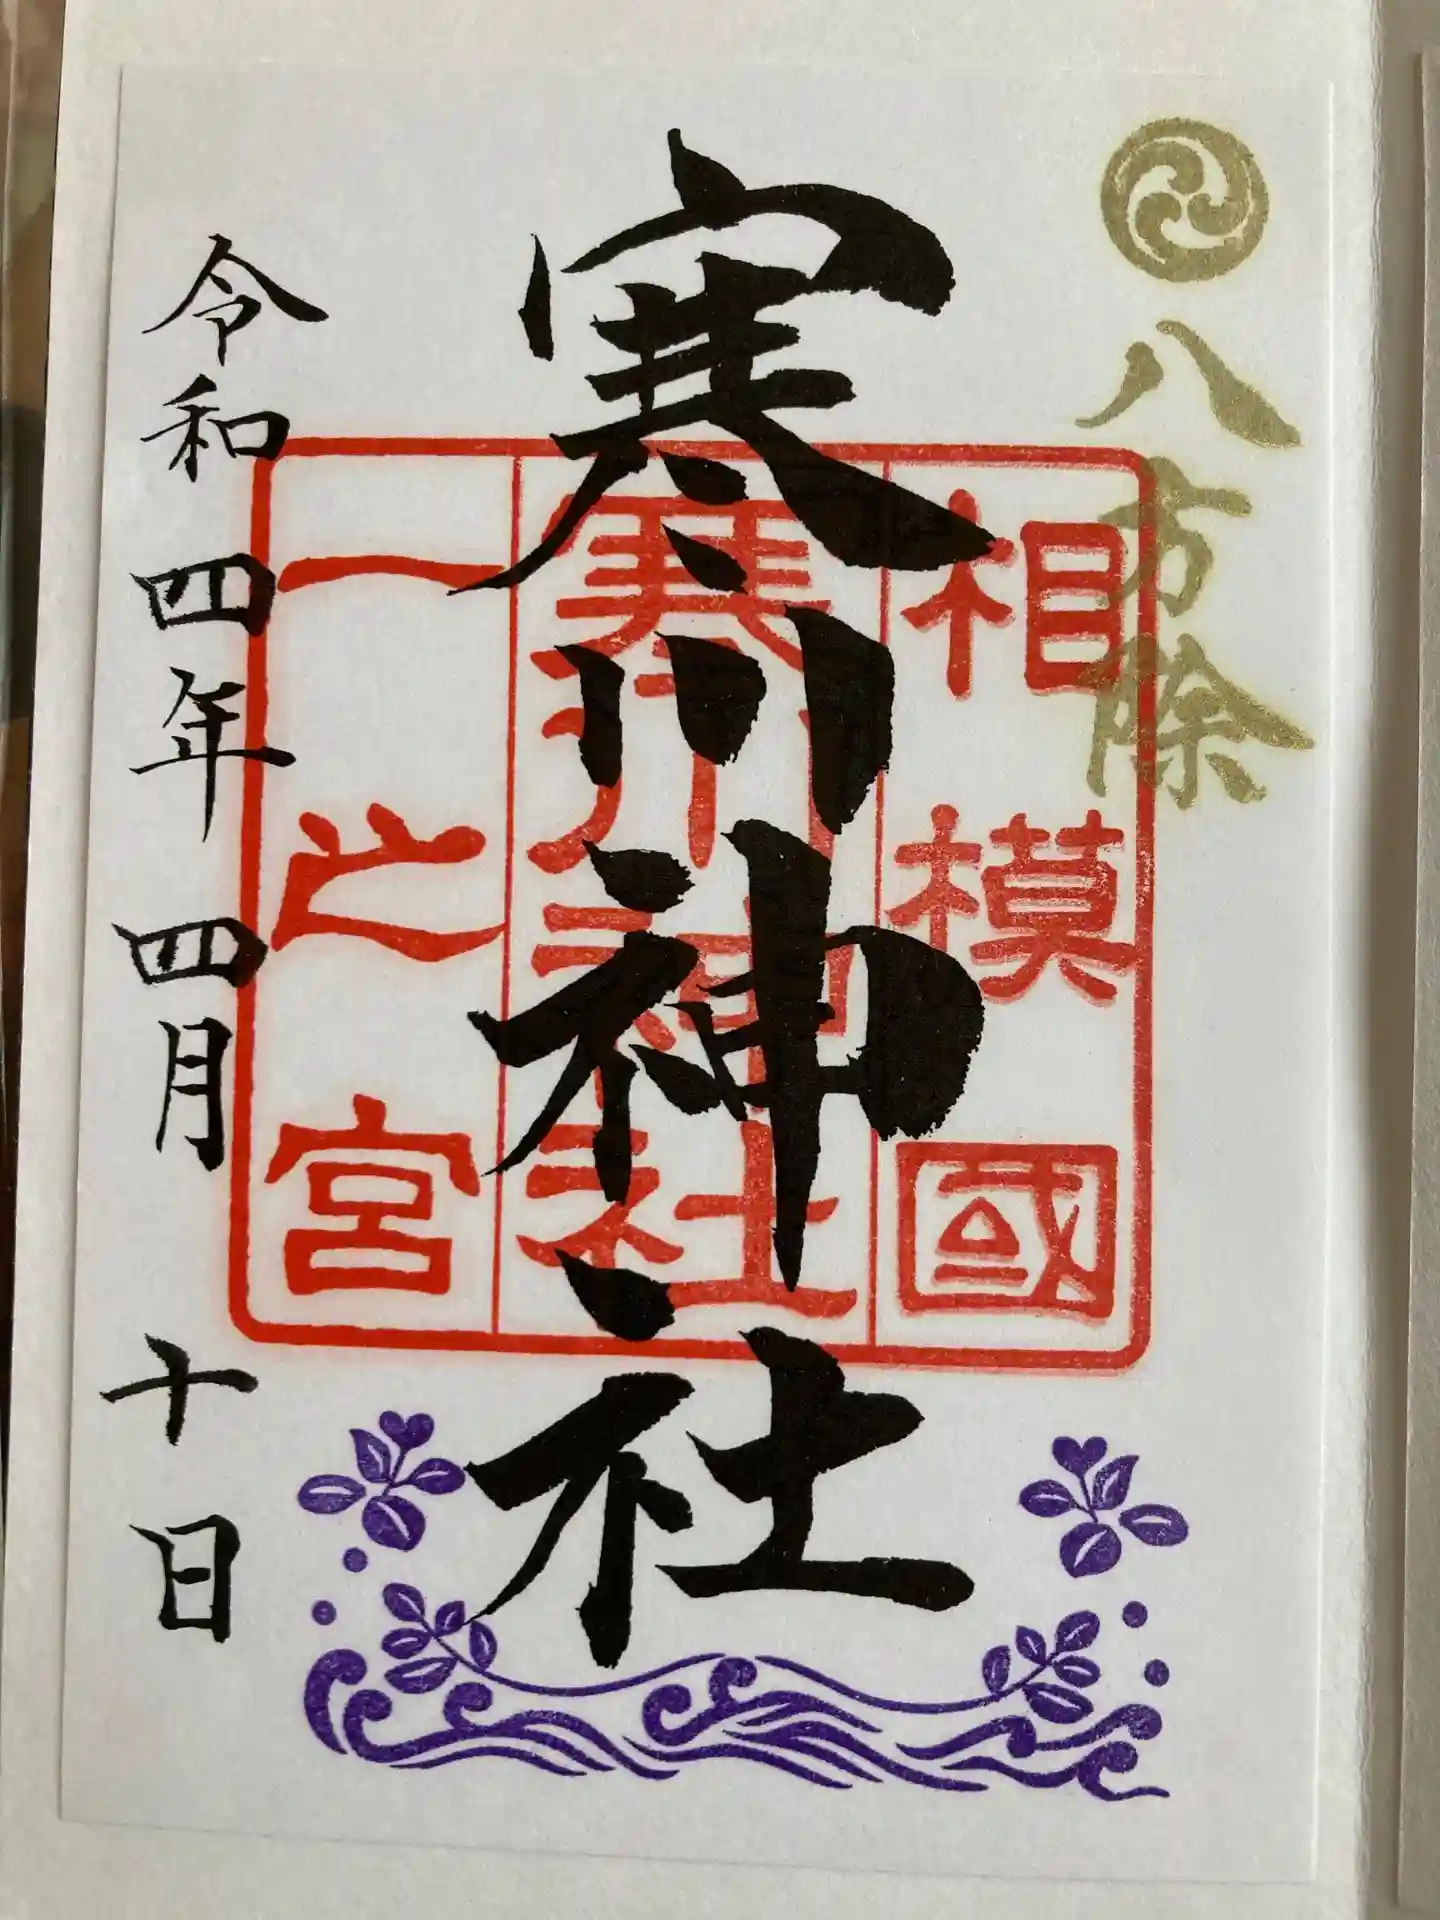 八方除
寒川神社
相模國
寒川神社
一之宮
令和四年四月十日